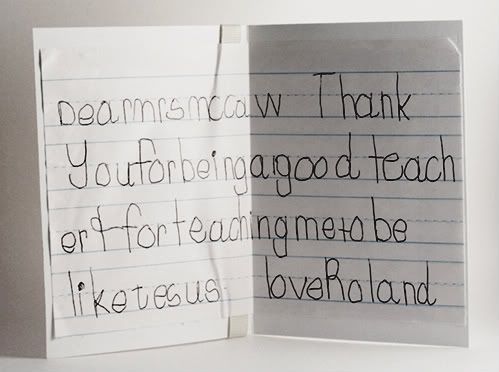 Dearmrsmccaw Thank
Youforbeingagood teach
er&forteachingmetobe
liketesus loveRoland